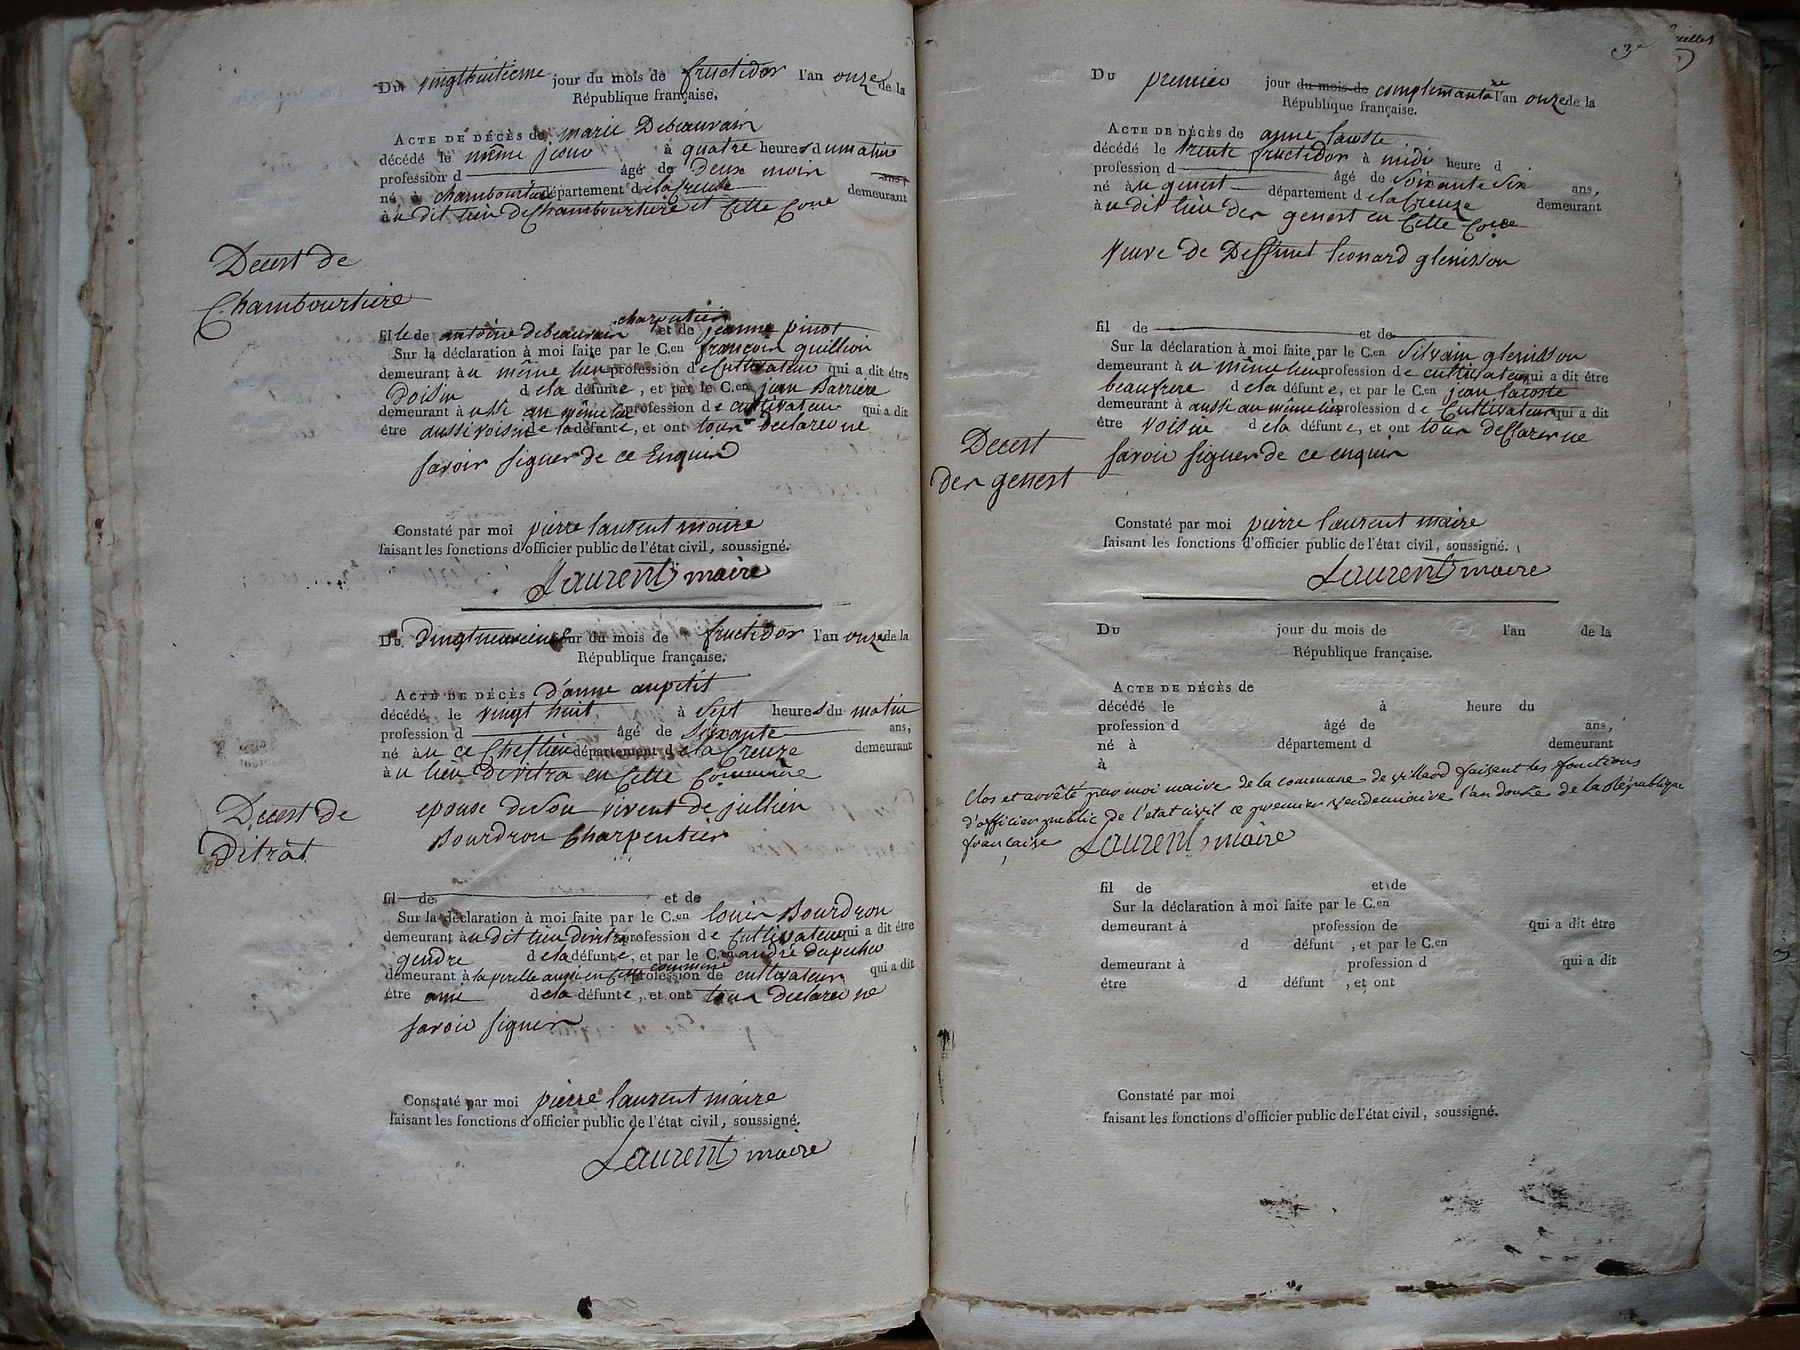 Du vingthuitieme jour du mois de fructidor l'an onze de la
République française.
ACTE DE DÉCÈS de marie Debeauvain
décédé le même jour à quatre heures du matin
profession d âgé de Deux mois ans,
né à chambourtiere département de la Creuse demeurant
à u dit lieu De Chambourtiere et Cette Coue
Decest de
Chambourtiere
fille de antoine debeauvain charpentier et de jeanne pinot
Sur la déclaration à moi faite par le C.en françois guillion
demeurant à u même lieu profession de Cultivateur qui a dit être
Voisin de la défunte, et par le C.en jean Barriere
demeurant à ussi au même lieu profession de cultivateur qui a dit
être aussi voisin de la défunte, et ont tous declarer ne
savoir signer de ce Enquis
Constaté par moi pierre laurent maire
faisant les fonctions d'officier public de l'état civil, soussigné.
Laurent maire
Du Vingtneuvieme jour du mois de fructidor l'an onze de la
République française.
ACTE DE DÉCÈS d'anne aupetit
décédé le vingt huit à sept heures du matin
profession d âgé de Soixante ans,
né à u ce Cheflieu département de la Creuze demeurant
à u lieu De vitra en Cette Commune
epouse de son vivent de jullien
Bourdron Charpentier
Decest de
Vitrat
fil de et de
Sur la déclaration à moi faite par le C.en louis Bourdron
demeurant à u dit lieu de vitra profession de Cultivateur qui a dit être
gendre de la défunte, et par le C.en andré dupechu
demeurant à la aussi en Cette commune profession de cultivateur qui a dit
être ami de la défunte, et ont tous declarer ne
savoir signer
Constaté par moi pierre laurent maire
faisant les fonctions d'officier public de l'état civil, soussigné.
Laurent maire
3e feuillet
Du premier jour du mois de complimantaire l'an onze de la
République française.
ACTE DE DÉCÈS de anne lacoste
décédé le trente fructidor à midi heure d
profession d âgé de Soixante Six ans,
né à u genest département de la Creuze demeurant
à u dit lieu des genest en Cette Coue
Veuve de Deffunt leonard glenisson
fil de et de
Sur la déclaration à moi faite par le C.en Silvain glenisson
demeurant à u même lieu profession de cultivateur qui a dit être
beaufrere de la défunte, et par le C.en jean lacoste
demeurant à aussi au même lieu profession de Cultivateur qui a dit
être voisin de la défunte, et ont tous deClarer ne
savoir signer de ce enquis
Decest
des genest
Constaté par moi pierre laurent maire
faisant les fonctions d'officier public de l'état civil, soussigné.
Laurent maire
Du jour du mois de l'an de la
République française.
ACTE DE DÉCÈS de
décédé le à heure du
profession d âgé de ans,
né à département d demeurant
à
Clos et arrêté par moi maire de la commune de villard faisant les fonctions
d'officier public de l'etat civil ce premier vendemiaire l'an douze de la République
francaise Laurent maire
fil de et de
Sur la déclaration à moi faite par le C.en
demeurant à profession de qui a dit être
d défunt , et par le C.en
demeurant à profession d qui a dit
être d défunt , et ont
Constaté par moi
faisant les fonctions d'officier public de l'état civil, soussigné.